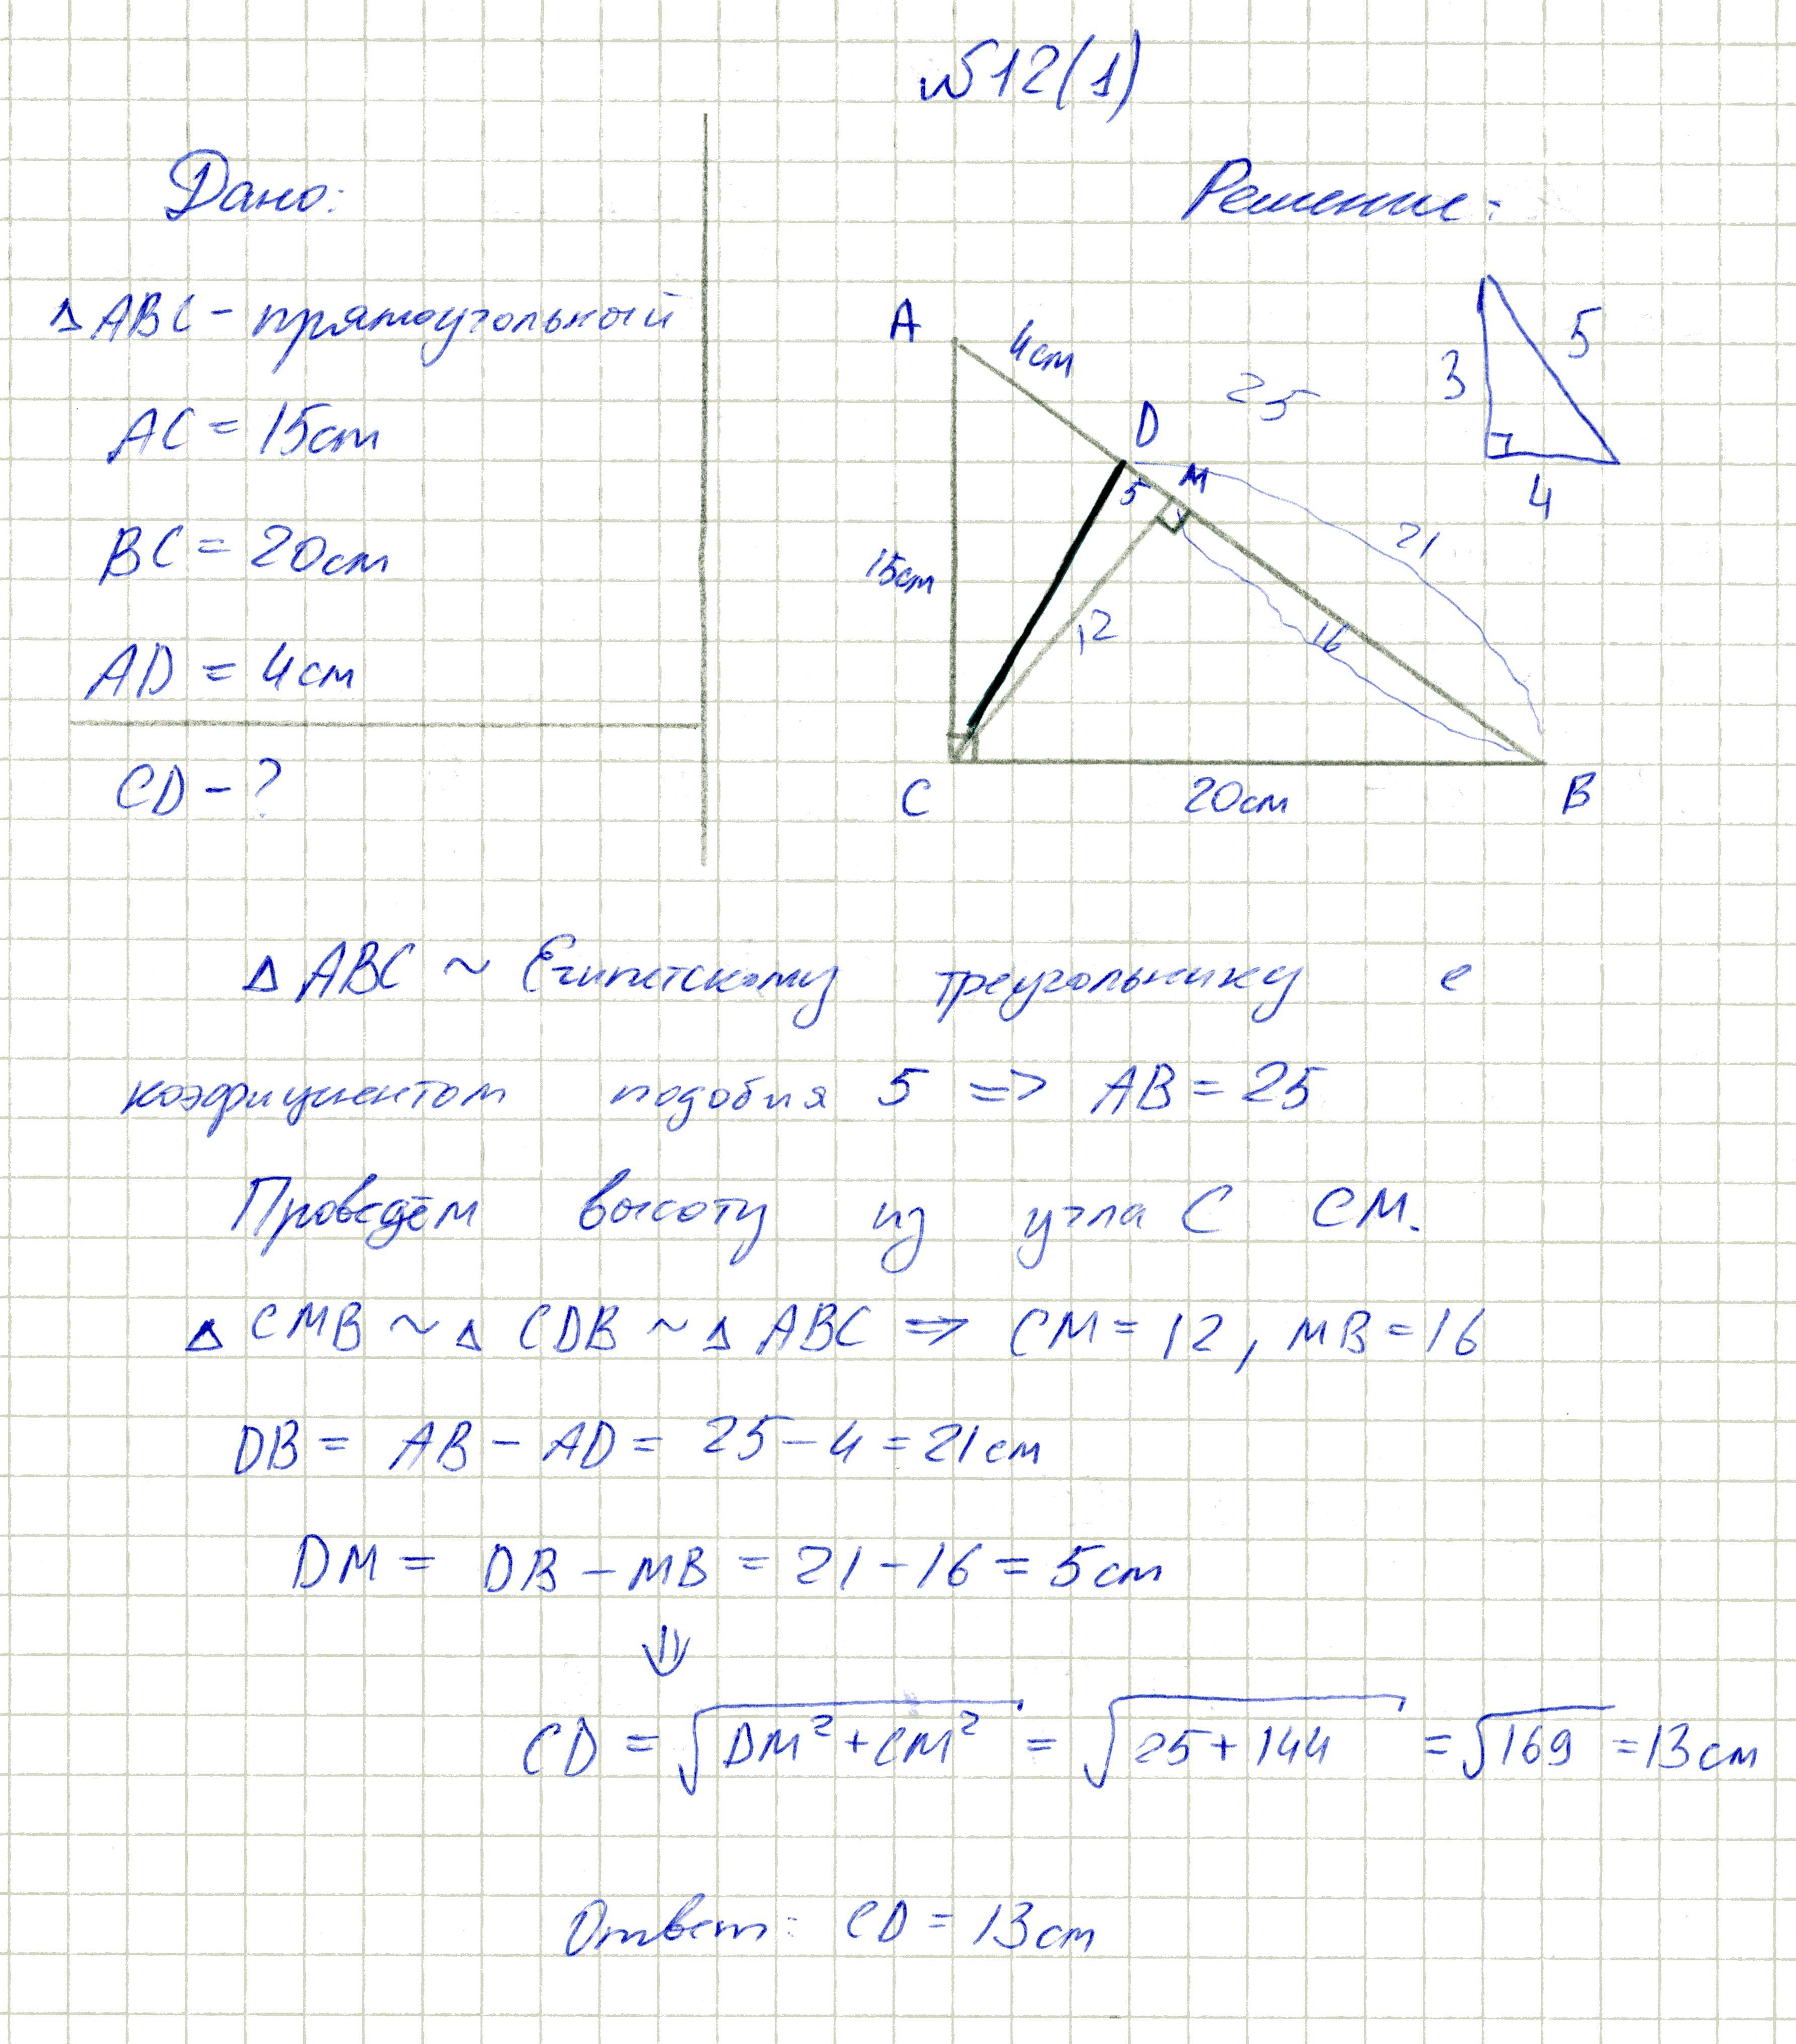 №12(1)
Дано:
Решение:
△ABC - прямоугольный
AC = 15см
BC = 20см
AD = 4см
CD - ?
A
4см
D
25
5
M
3
5
4
15см
12
21
16
C
20см
B
△ ABC ~ Египетскому треугольнику с
коэфициентом подобия 5 => AB = 25
Проведём высоту из угла C CM.
△ CMB ~ △ CDB ~ △ ABC => CM = 12, MB = 16
DB = AB - AD = 25 - 4 = 21см
DM = DB - MB = 21 - 16 = 5см
⇓
CD = √(DM² + CM²) = √(25 + 144) = √169 = 13см
Ответ: CD = 13см